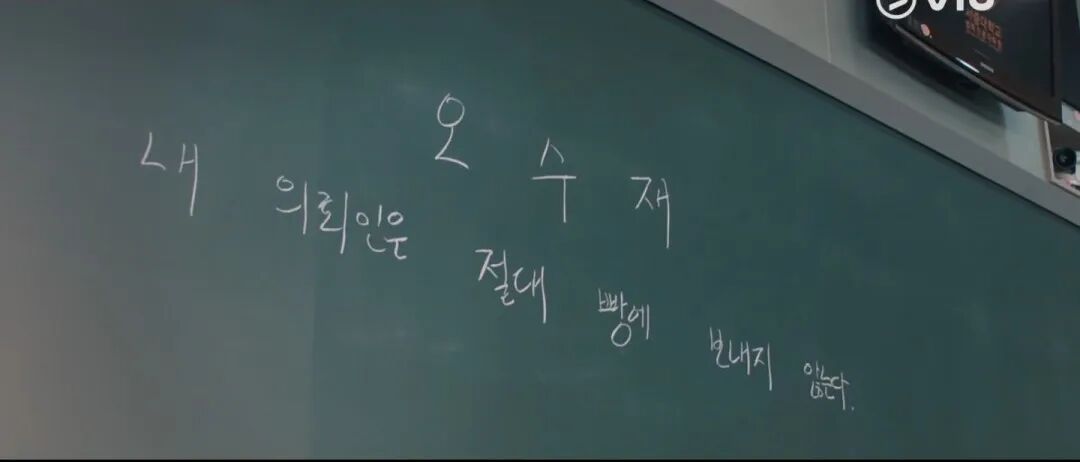 오 수 재
내 의뢰인은 절대 빵에 보내지 않는다.
viu